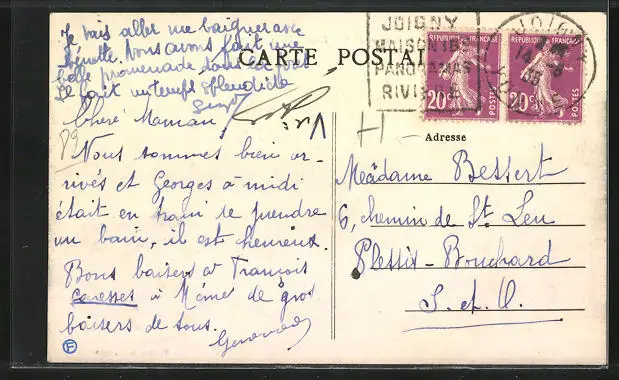 Je vais aller me baigner avec
Nous avons fait une
belle promenade dans
Il fait un temps splendide
CARTE POSTALE
JOIGNY
MAISONS
PANORAMAS
RIVIERE
JOIGNY
REPUBLIQUE FRANÇAISE
20c POSTES
REPUBLIQUE FRANÇAISE
20c POSTES
Vu
H
89
Chère Maman
Nous sommes bien ar-
rivés et Georges à midi
était en train de prendre
un bain, il est heureux.
Bons baisers à François
caresses à Mémé de gros
baisers de tous.
F
Adresse
Madame Bessert
6, chemin de St. Leu
Plessis-Bouchard
S. et O.